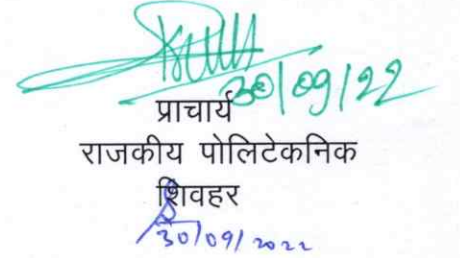 30/09/22
प्राचार्य
राजकीय पोलिटेकनिक
शिवहर
30/09/2022